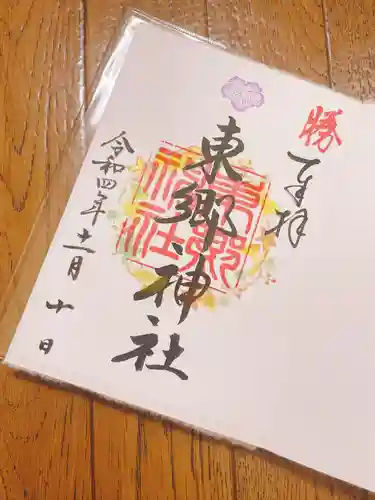 勝
奉拝
東郷神社
東郷神社
令和四年十一月十日